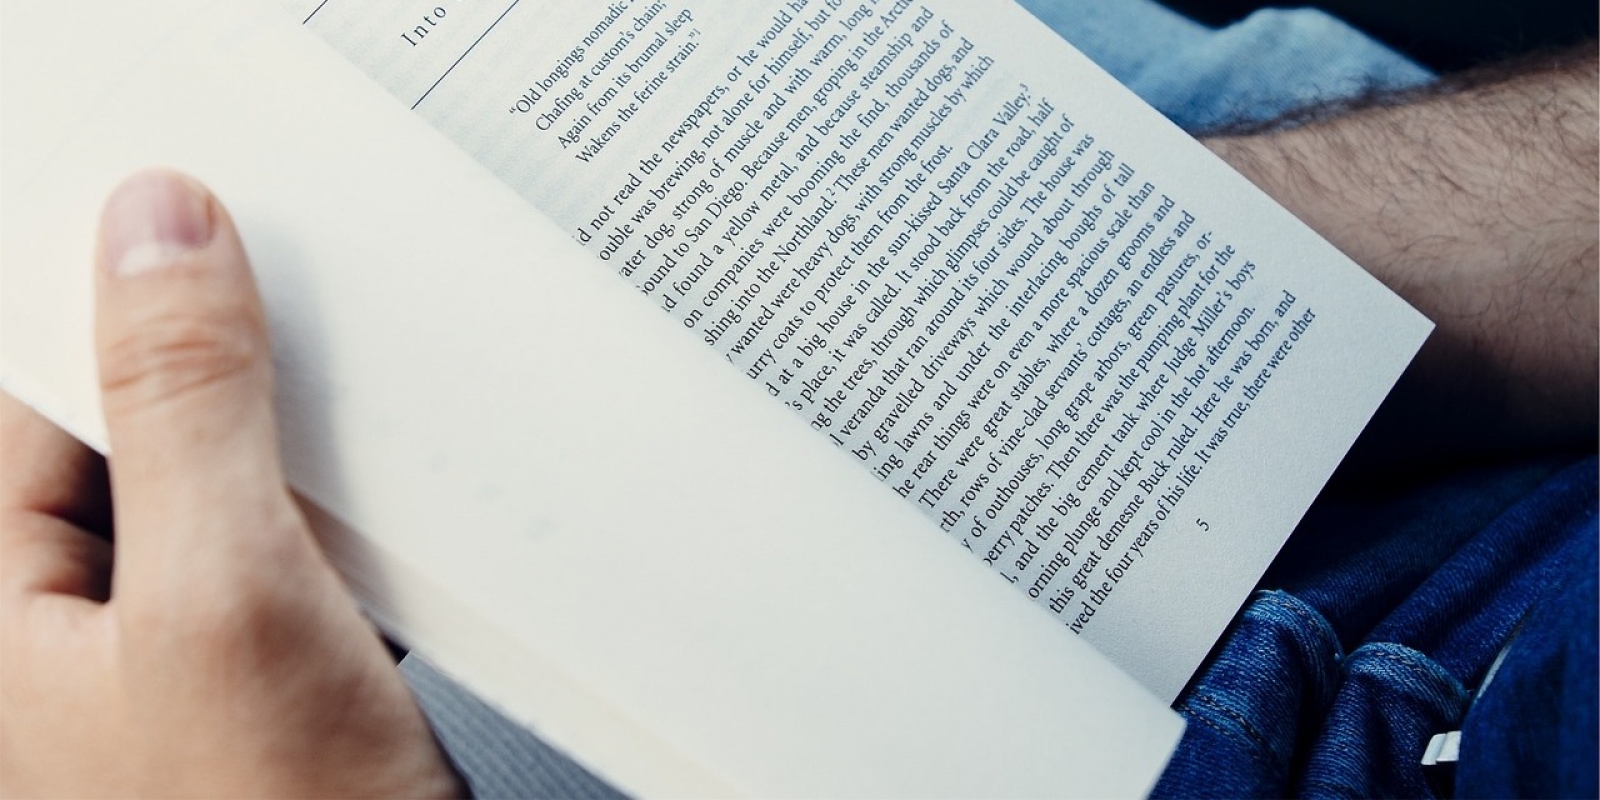 Into
"Old longings nomadic
Chafing at custom's chain;
Again from its brumal sleep
Wakens the ferine strain."1
not read the newspapers, or he would
was brewing, not alone for himself, but
dog, strong of muscle and with warm, long
to San Diego. Because men, groping in the
found a yellow metal, and because steamship and
companies were booming the find, thousands of
into the Northland.2 These men wanted dogs, and
wanted were heavy dogs, with strong muscles by which
coats to protect them from the frost.
at a big house in the sun-kissed Santa Clara Valley.3
place, it was called. It stood back from the road, half
the trees, through which glimpses could be caught of
veranda that ran around its four sides. The house was
by gravelled driveways which wound about through
lawns and under the interlacing boughs of tall
rear things were on even a more spacious scale than
There were great stables, where a dozen grooms and
rows of vine-clad servants' cottages, an endless and
of outhouses, long grape arbors, green pastures, or-
patches. Then there was the pumping plant for the
and the big cement tank where Judge Miller's boys
plunge and kept cool in the hot afternoon.
this great demesne Buck ruled. Here he was born, and
the four years of his life. It was true, there were other
5